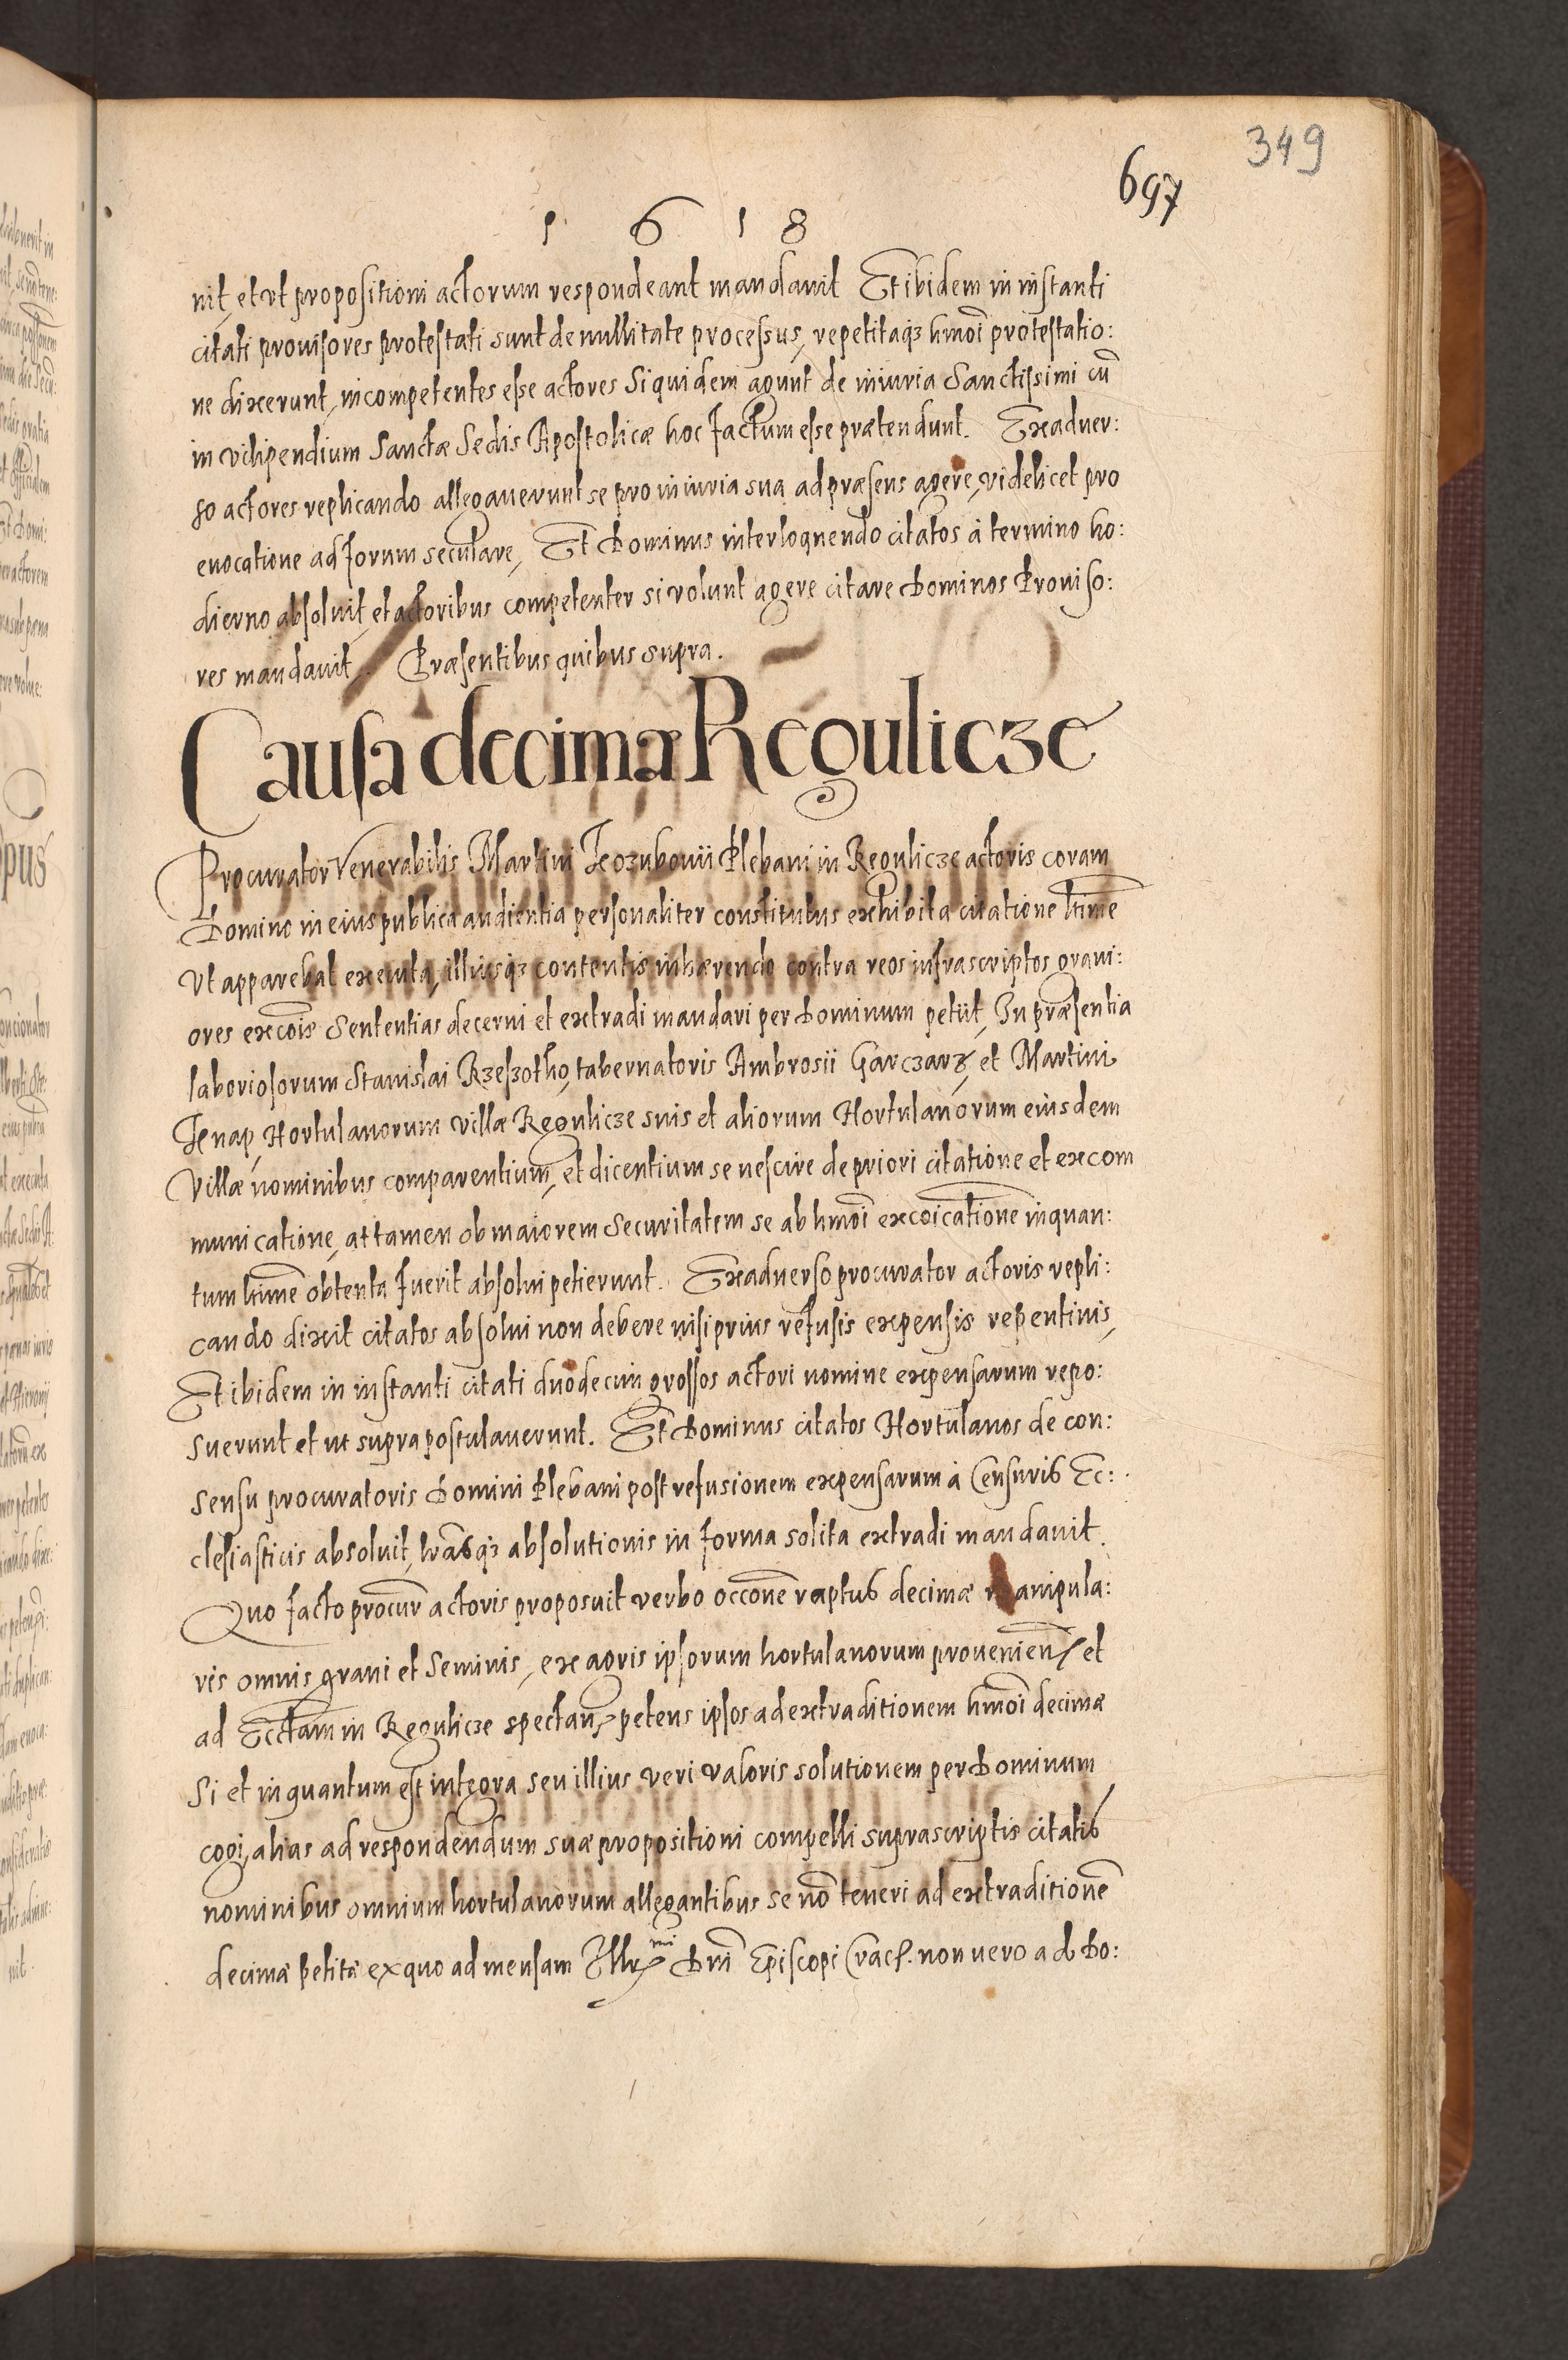 349
697
1618
nit, et vt propositioni actorum respondeant mandauit Et ibidem in instanti
citati prouisores protestati sunt de nullitate processus, repetitaqꝫ hmoi protestatio:
ne dixerunt, incompetentes esse actores siquidem agunt de iniuria Sanctissimi cū
in vilipendium Sanctæ Sedis Apostolicæ hoc factum esse prætendunt. Exaduer:
so actores replicando allegauerunt se pro iniuria sua ad præsens agere, videlicet pro
euocatione ad forum seculare, Et Dominus interloquendo citatos à termino ho:
dierno absoluit, et actoribus competenter si volunt agere citare Dominos Prouiso:
res mandauit. Præsentibus quibus supra.
Causa decimæ Regulicze
Procurator Venerabilis Martini Kozubouii Plebani in Regulicze actoris coram
Domino in eius publica audientia personaliter constitutus exhibita citatione ltime
vt apparebat executa, illiusqꝫ contentis inhærendo contra reos infrascriptos graui:
ores excois sententias decerni et extradi mandari per Dominum petiit, In præsentia
laboriosorum Stanislai Rzeszotho, tabernatoris Ambrosii Garczarz, et Martini
Knap, Hortulanorum villæ Regulicze suis et aliorum Hortulanorum eiusdem
Villæ nominibus comparentium, et dicentium se nescire de priori citatione et excom
municatione, attamen ob maiorem securitatem se ab hmoi excoicatione inquan:
tum ltime obtenta fuerit absolui petierunt. Exaduerso procurator actoris repli:
cando dixit citatos absolui non debere nisi prius refusis expensis repentinis,
Et ibidem in instanti citati duodecim grossos actori nomine expensarum repo:
suerunt et ut supra postulauerunt. Et Dominus citatos Hortulanos de con:
sensu procuratoris Domini Plebani post refusionem expensarum à Censuris Ec:
clesiasticis absoluit, lrasqꝫ absolutionis in forma solita extradi mandauit.
Quo facto procur actoris proposuit verbo occone raptus decimæ manipula:
ris omnis grani et seminis, ex agris ipsorum hortulanorum prouenien, et
ad Ecctam in Regulicze spectan, petens ipsos ad extraditionem hmoi decimæ
si et inquantum est integra seu illius veri valoris solutionem per Dominum
cogi, alias ad respondendum suæ propositioni compelli suprascriptis citatis
nominibus omnium hortulanorum allegantibus se nō teneri ad extraditionē
decimæ petitæ ex quo ad mensam Illrmi Dni Episcopi Crac. non vero ad Do: